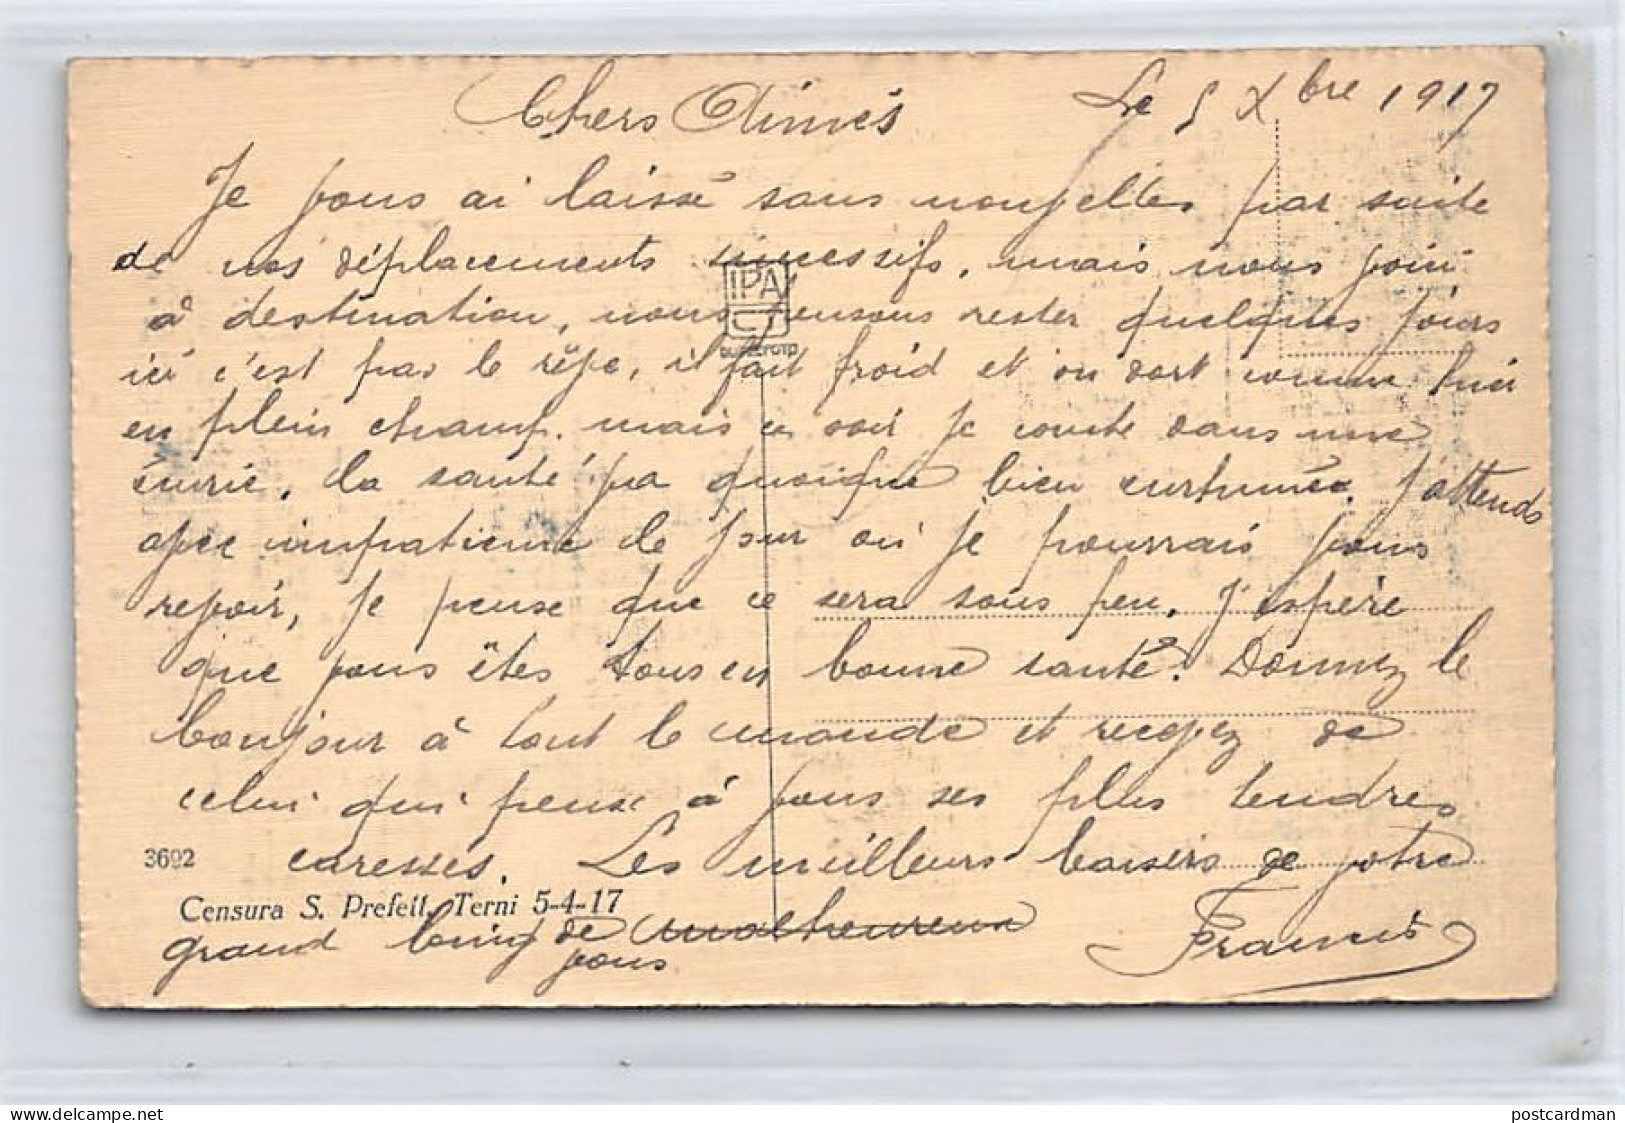 Le 5 Xbre 1917
Chers Aimés
Je vous ai laissé sans nouvelles par suite
de nos déplacements successifs, mais nous voici
à destination, nous pensons rester quelques jours
ici c'est pas le rêve, il fait froid et on dort comme hier
en plein champ. mais ce soir je couche dans une
écurie. La santé va quoique bien enrhumée. J'attends
avec impatience le jour où je pourrais vous
revoir, je pense que ce sera sous peu. J'espère
que vous êtes tous en bonne santé. Donnez le
bonjour à tout le monde et recevez de
celui qui pense à vous ses plus tendres
caresses. Les meilleurs baisers de votre
grand loin de malheureux
vous
Francis
IPA CT
AUTOCROM
3692
Censura S. Prefett. Terni 5-4-17
www.delcampe.net
postcardman